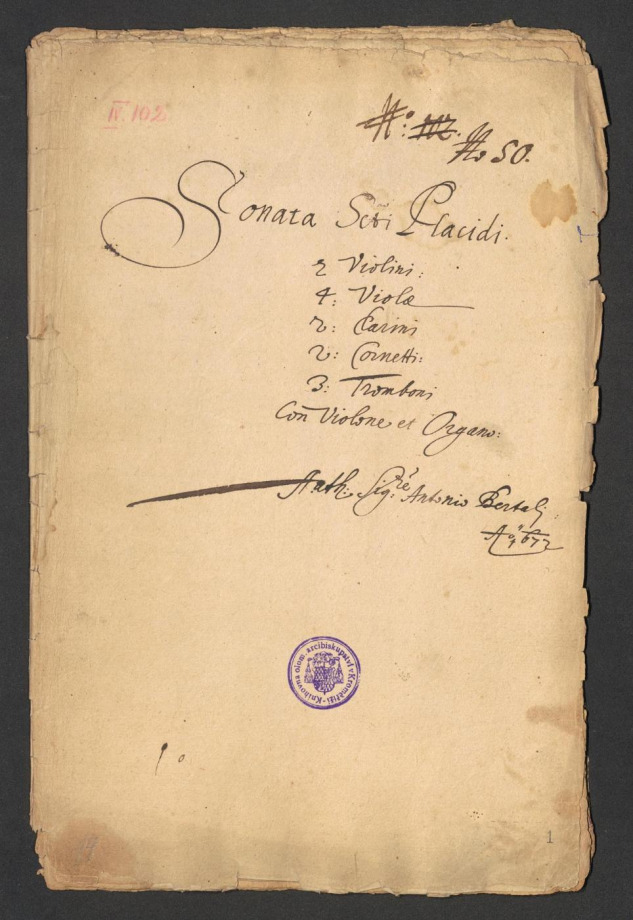 IV. 102
No: 102.
No 50.
Sonata Scti Placidi.
2 Violini:
4: Violæ
2: Clarini
2: Cornetti:
3: Tromboni
Con Violone et Organo:
Auth: Sigre: Antonio Bertali
Ao 1672
Knihovna olom. arcibiskupství v Kroměříži
1